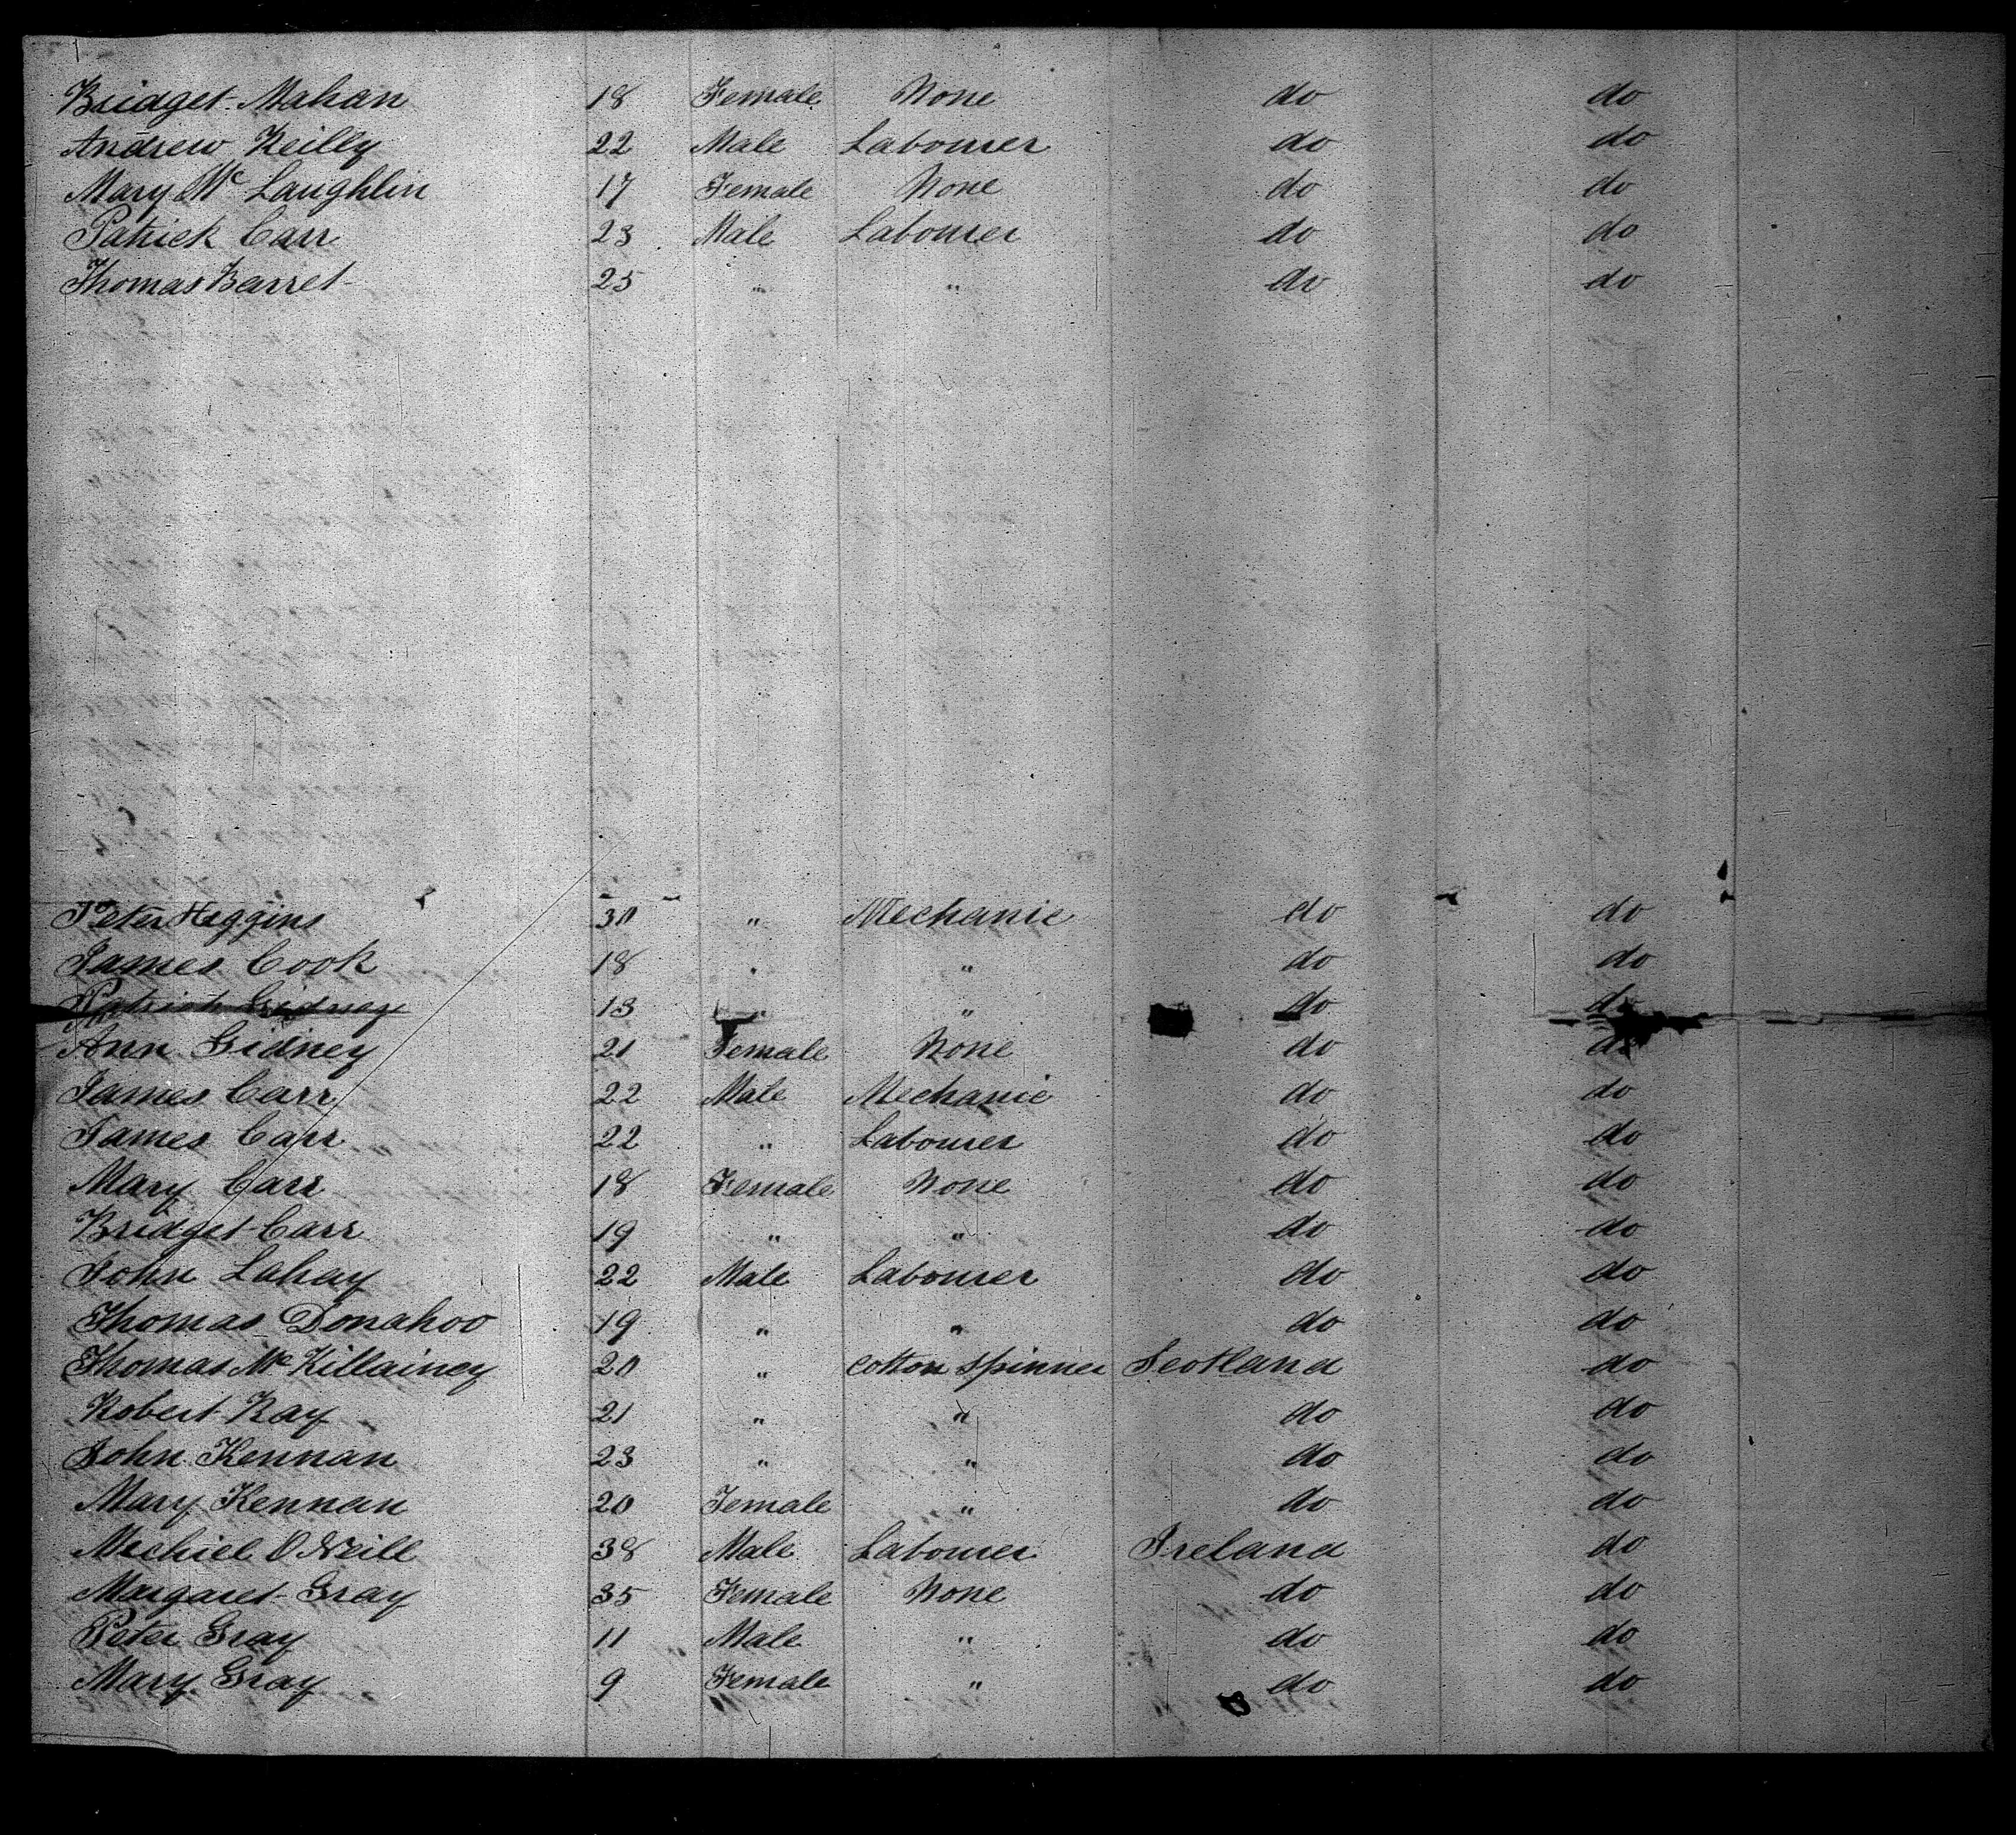 Bridget Mahan 18 Female None do do
Andrew Reilly 22 Male Labourer do do
Mary Mc Laughlin 17 Female None do do
Patrick Carr 23 Male Labourer do do
Thomas Barret 25 " " do do
Peter Heggins 30 " Mechanic do do
James Cook 18 " " do do
Patrick Gidney 13 " " do do
Ann Gidney 21 Female None do do
James Carr 22 Male Mechanic do do
James Carr 22 " Labourer do do
Mary Carr 18 Female None do do
Bridget Carr 19 " " do do
John Lahay 22 Male Labourer do do
Thomas Donahoo 19 " " do do
Thomas Mc Killainey 20 " Cotton Spinner Scotland do
Robert Ray 21 " " do do
John Kennan 23 " " do do
Mary Kennan 20 Female " do do
Mechiel O Neill 38 Male Labourer Ireland do
Margaret Gray 35 Female None do do
Peter Gray 11 Male " do do
Mary Gray 9 Female " do do